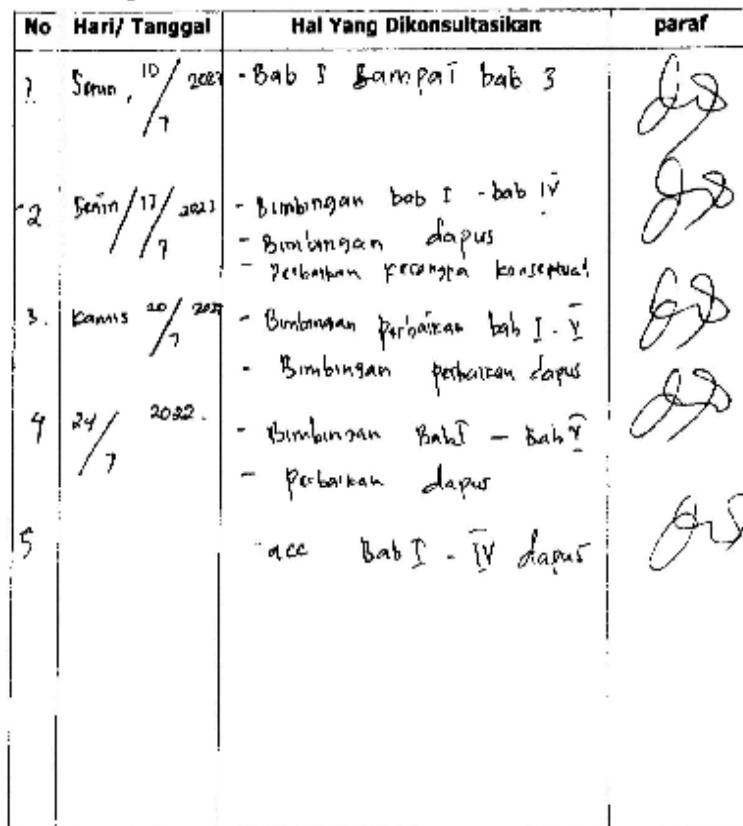 No Hari/ Tanggal Hal Yang Dikonsultasikan paraf
1. Senin, 10/7 2023 - Bab I Sampai bab 3
2 Senin/17/7 2023 - Bimbingan bab I - bab IV
- Bimbingan dapus
- Perbaikan kerangka konseptual
3. Kamis 20/7 - Bimbingan perbaikan bab I - V
- Bimbingan perbaikan dapus
4 24/7 2022. - Bimbingan Bab I - Bab V
- Perbaikan dapus
5 - acc Bab I - IV dapus